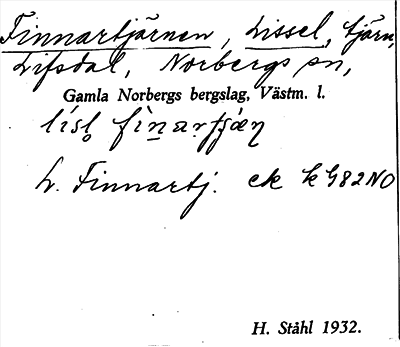 Finnartjärnen, Lissel, tjärn,
Lifsdal, Norbergs sn,
Gamla Norbergs bergslag, Västm. l.
lísl̥ fìn̲ar̥tʃǽn̥
L. Finnartj. ek k G82NO
H. Ståhl 1932.